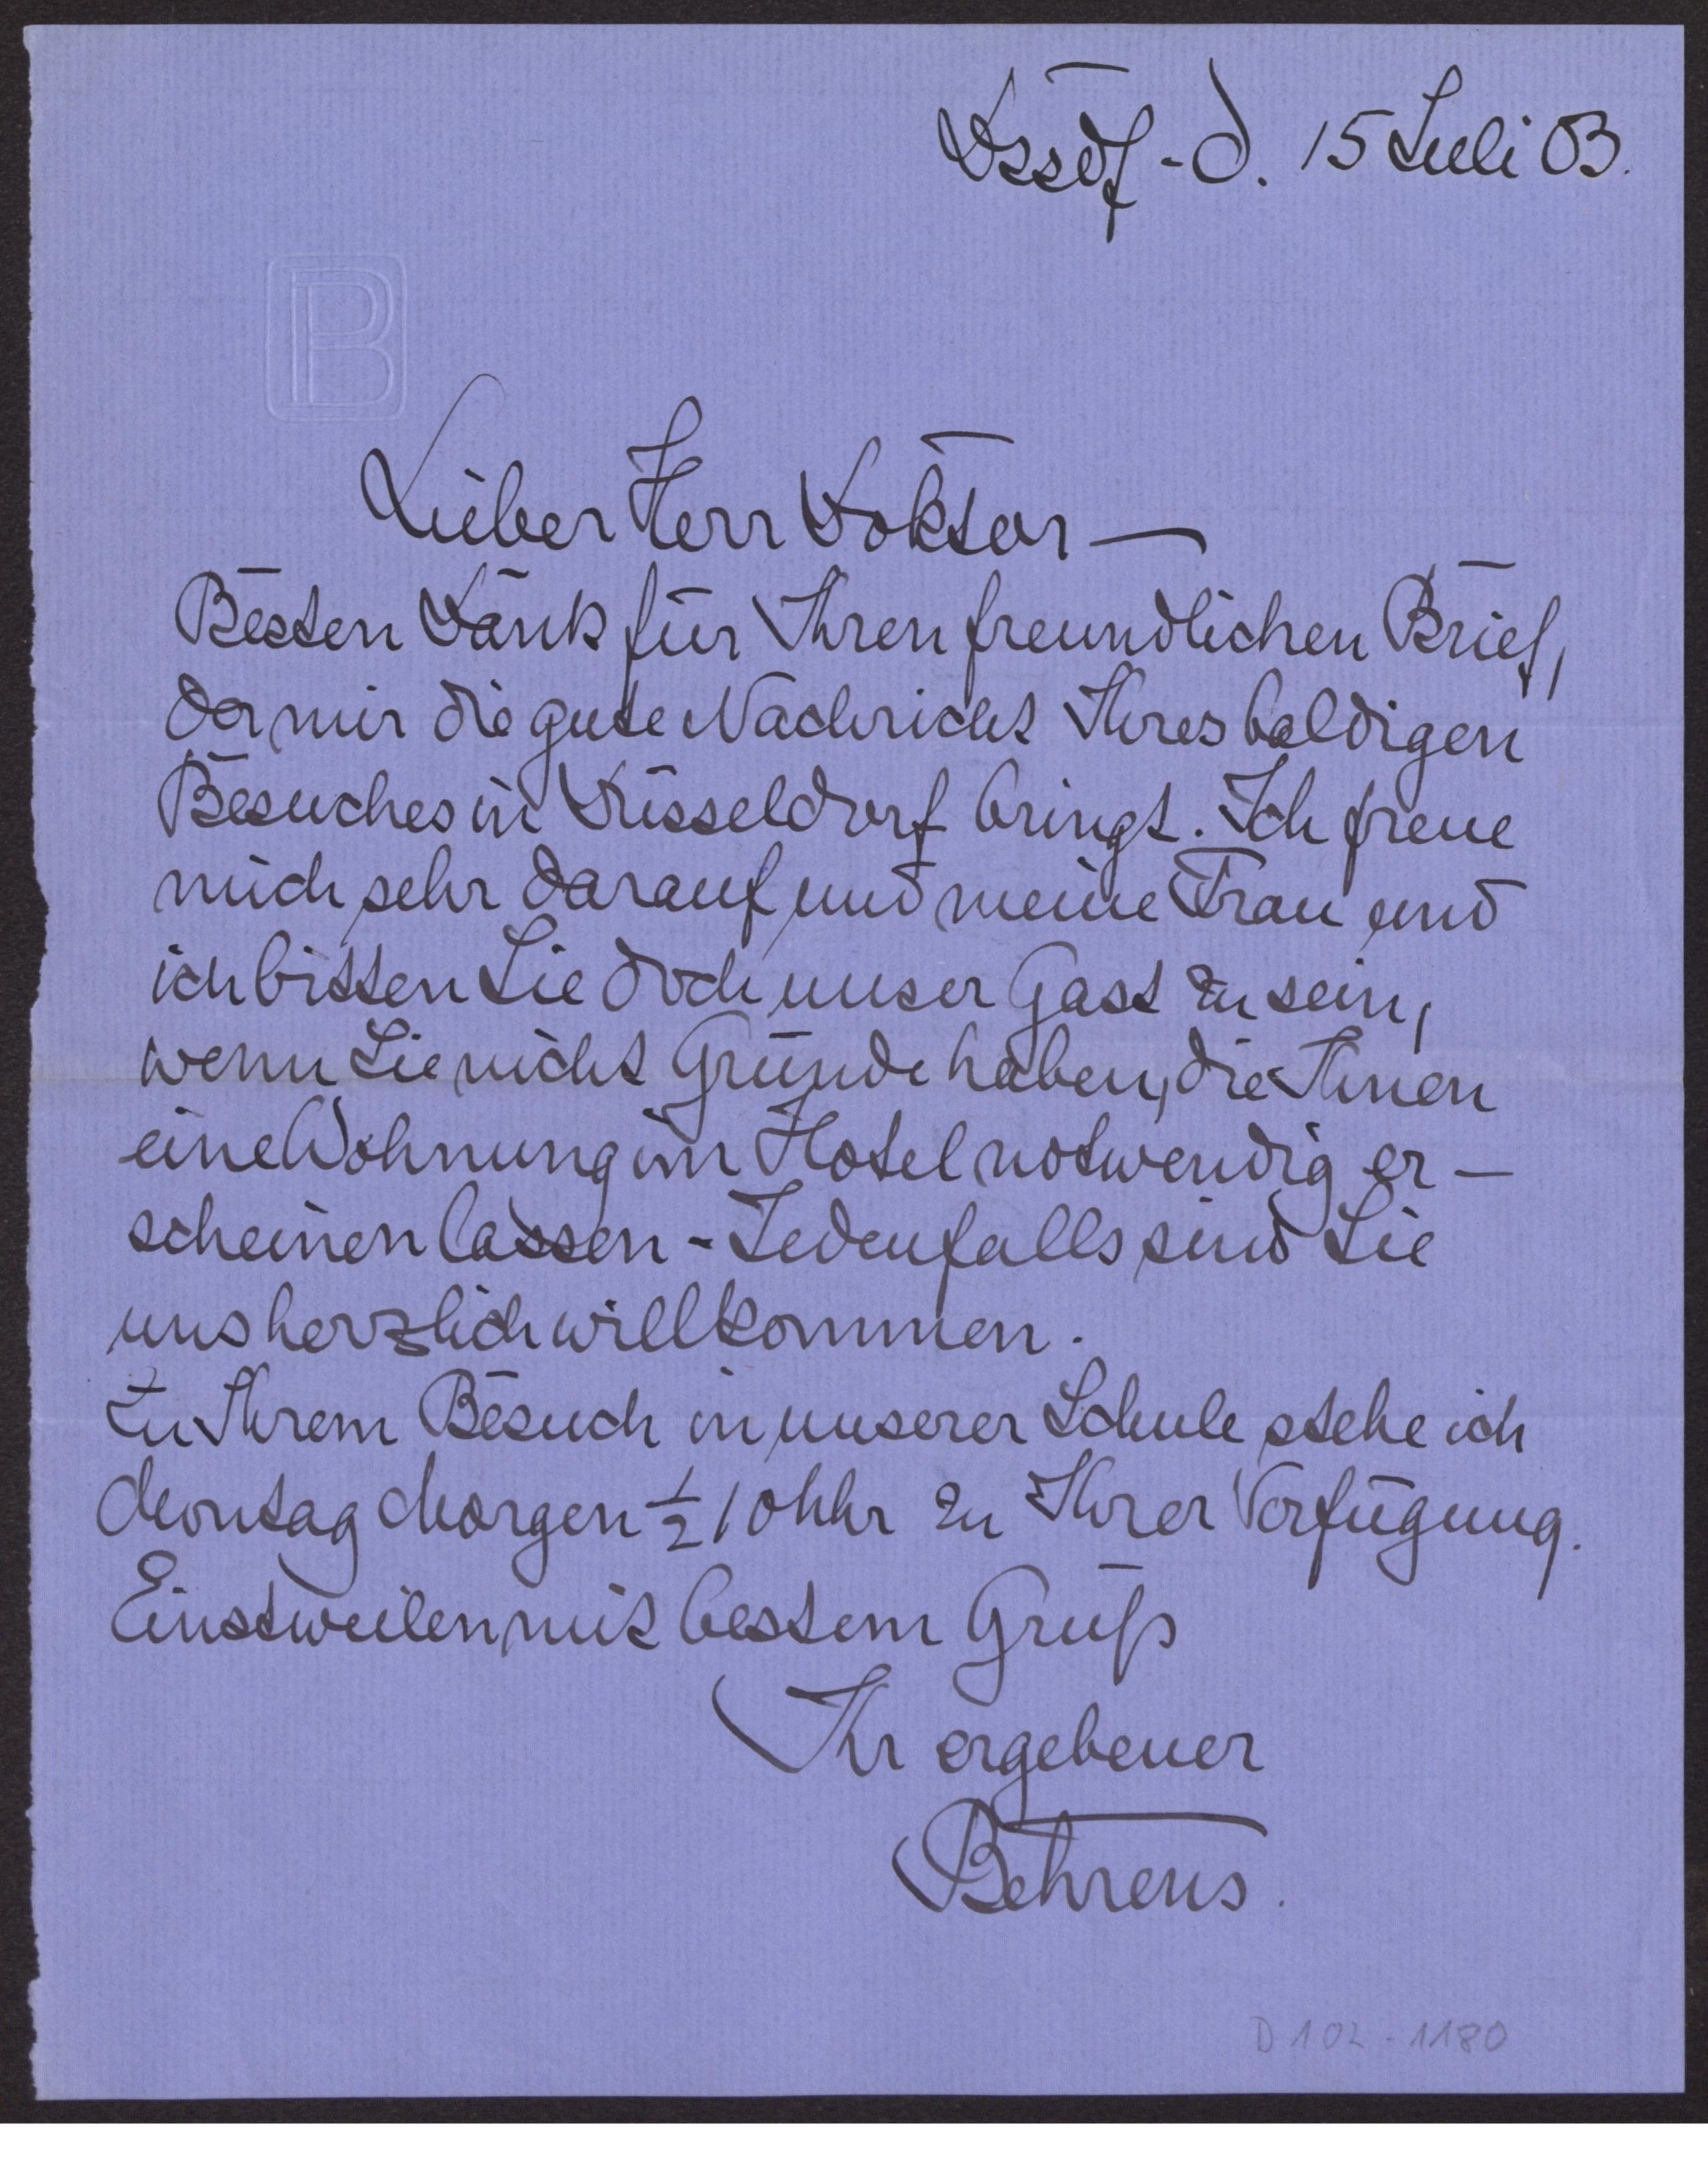 Dssdf - d. 15 Juli 03.
B
Lieber Herr Doktor —
Besten Dank für Ihren freundlichen Brief,
der mir die gute Nachricht Ihres baldigen
Besuches in Düsseldorf bringt. Ich freue
mich sehr darauf und meine Frau und
ich bitten Sie doch unser Gast zu sein,
wenn Sie nicht Gründe haben, die Ihnen
eine Wohnung im Hotel notwendig er –
scheinen lassen - Jedenfalls sind Sie
uns herzlich willkommen.
Zu Ihrem Besuch in unserer Schule stehe ich
Montag Morgen ½ 10 Uhr zu Ihrer Verfügung.
Einstweilen mit bestem Gruß
Ihr ergebener
Behrens.
D 102 - 1180